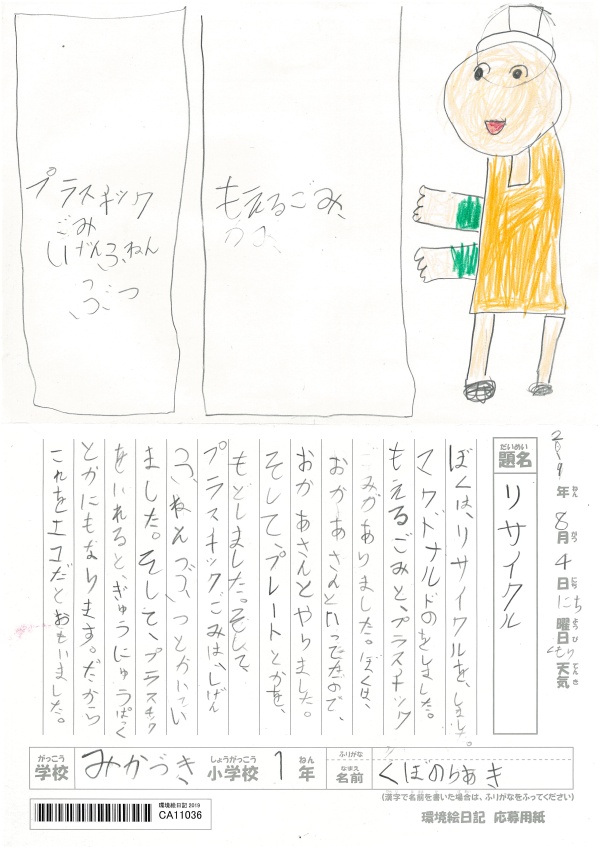 プラスチック
ごみ
しげんふねん
っ
ぶつ
もえるごみ、
2019年ねん 8月がつ 4日にち にち曜日ようび くもり天気てんき
題名だいめい リサイクル
ぼくは、リサイクルを、しました。
マクドナルドのをしました。
もえるごみと、プラスチック
みがありました。ぼくは、
おかあさんといったので、
おかあさんとやりました。
そして、プレートとかを、
もどしました。そして、
プラスチックごみは、しげん
ふねんぶつとかいてい
ました。そして、プラスチック
をいれると、ぎゅうにゅうぱっく
とかにもなります。だから
これをエコだとおもいました。
学校がっこう みかづき 小学校しょうがっこう 1年ねん 名前なまえ ふりがな くぼのらあき
(漢字で名前を書いた場合は、ふりがなをふってください)
環境絵日記 2019
CA11036
環境絵日記 応募用紙